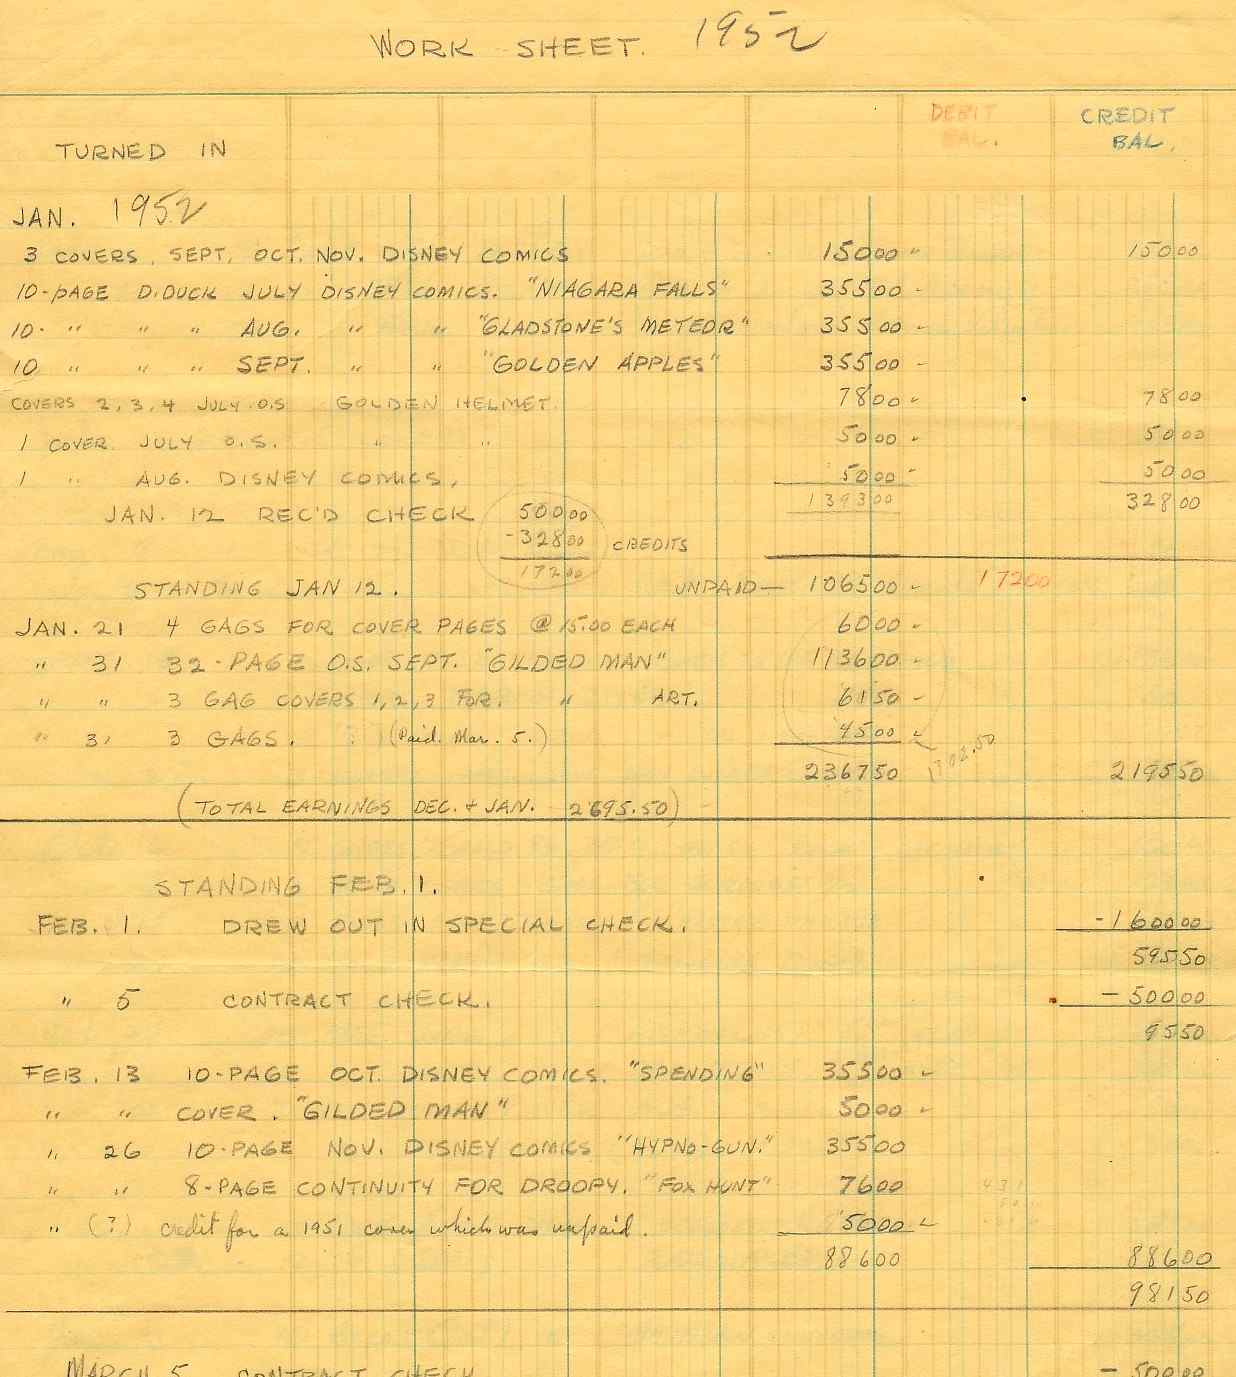 WORK SHEET. 1952
DEBIT BAL. CREDIT BAL.
TURNED IN
JAN. 1952
3 COVERS, SEPT, OCT. NOV. DISNEY COMICS 150 00 150 00
10-PAGE D. DUCK JULY DISNEY COMICS. "NIAGARA FALLS" 355 00
10- " " " AUG. " " "GLADSTONE'S METEOR" 355 00
10 " " " SEPT. " " "GOLDEN APPLES" 355 00
COVERS 2, 3, 4 JULY O.S GOLDEN HELMET. 78 00 78 00
1 COVER JULY O.S. " " 50 00 50 00
1 " AUG. DISNEY COMICS. 50 00 50 00
JAN. 12 REC'D CHECK 500 00 1393 00 328 00
-328 00 CREDITS
172 00
STANDING JAN 12. UNPAID— 1065 00 172 00
JAN. 21 4 GAGS FOR COVER PAGES @ 15.00 EACH 60 00
" 31 32-PAGE O.S. SEPT. "GILDED MAN" 1136 00
" " 3 GAG COVERS 1, 2, 3 FOR. " ART. 61 50
" 31 3 GAGS. (Paid. Mar. 5.) 45 00
1302.50
2367 50 2195 50
(TOTAL EARNINGS DEC. + JAN. 2695.50)
STANDING FEB. 1.
FEB. 1. DREW OUT IN SPECIAL CHECK. -1600 00
595 50
" 5 CONTRACT CHECK. -500 00
95 50
FEB. 13 10-PAGE OCT. DISNEY COMICS. "SPENDING" 355 00
" " COVER. "GILDED MAN" 50 00
" 26 10-PAGE NOV. DISNEY COMICS "HYPNO-GUN." 355 00
" " 8-PAGE CONTINUITY FOR DROOPY. "FOX HUNT" 76 00
" (?) credit for a 1951 cover which was unpaid. 50 00
886 00 886 00
981 50
MARCH 5 CONTRACT CHECK - 500 00